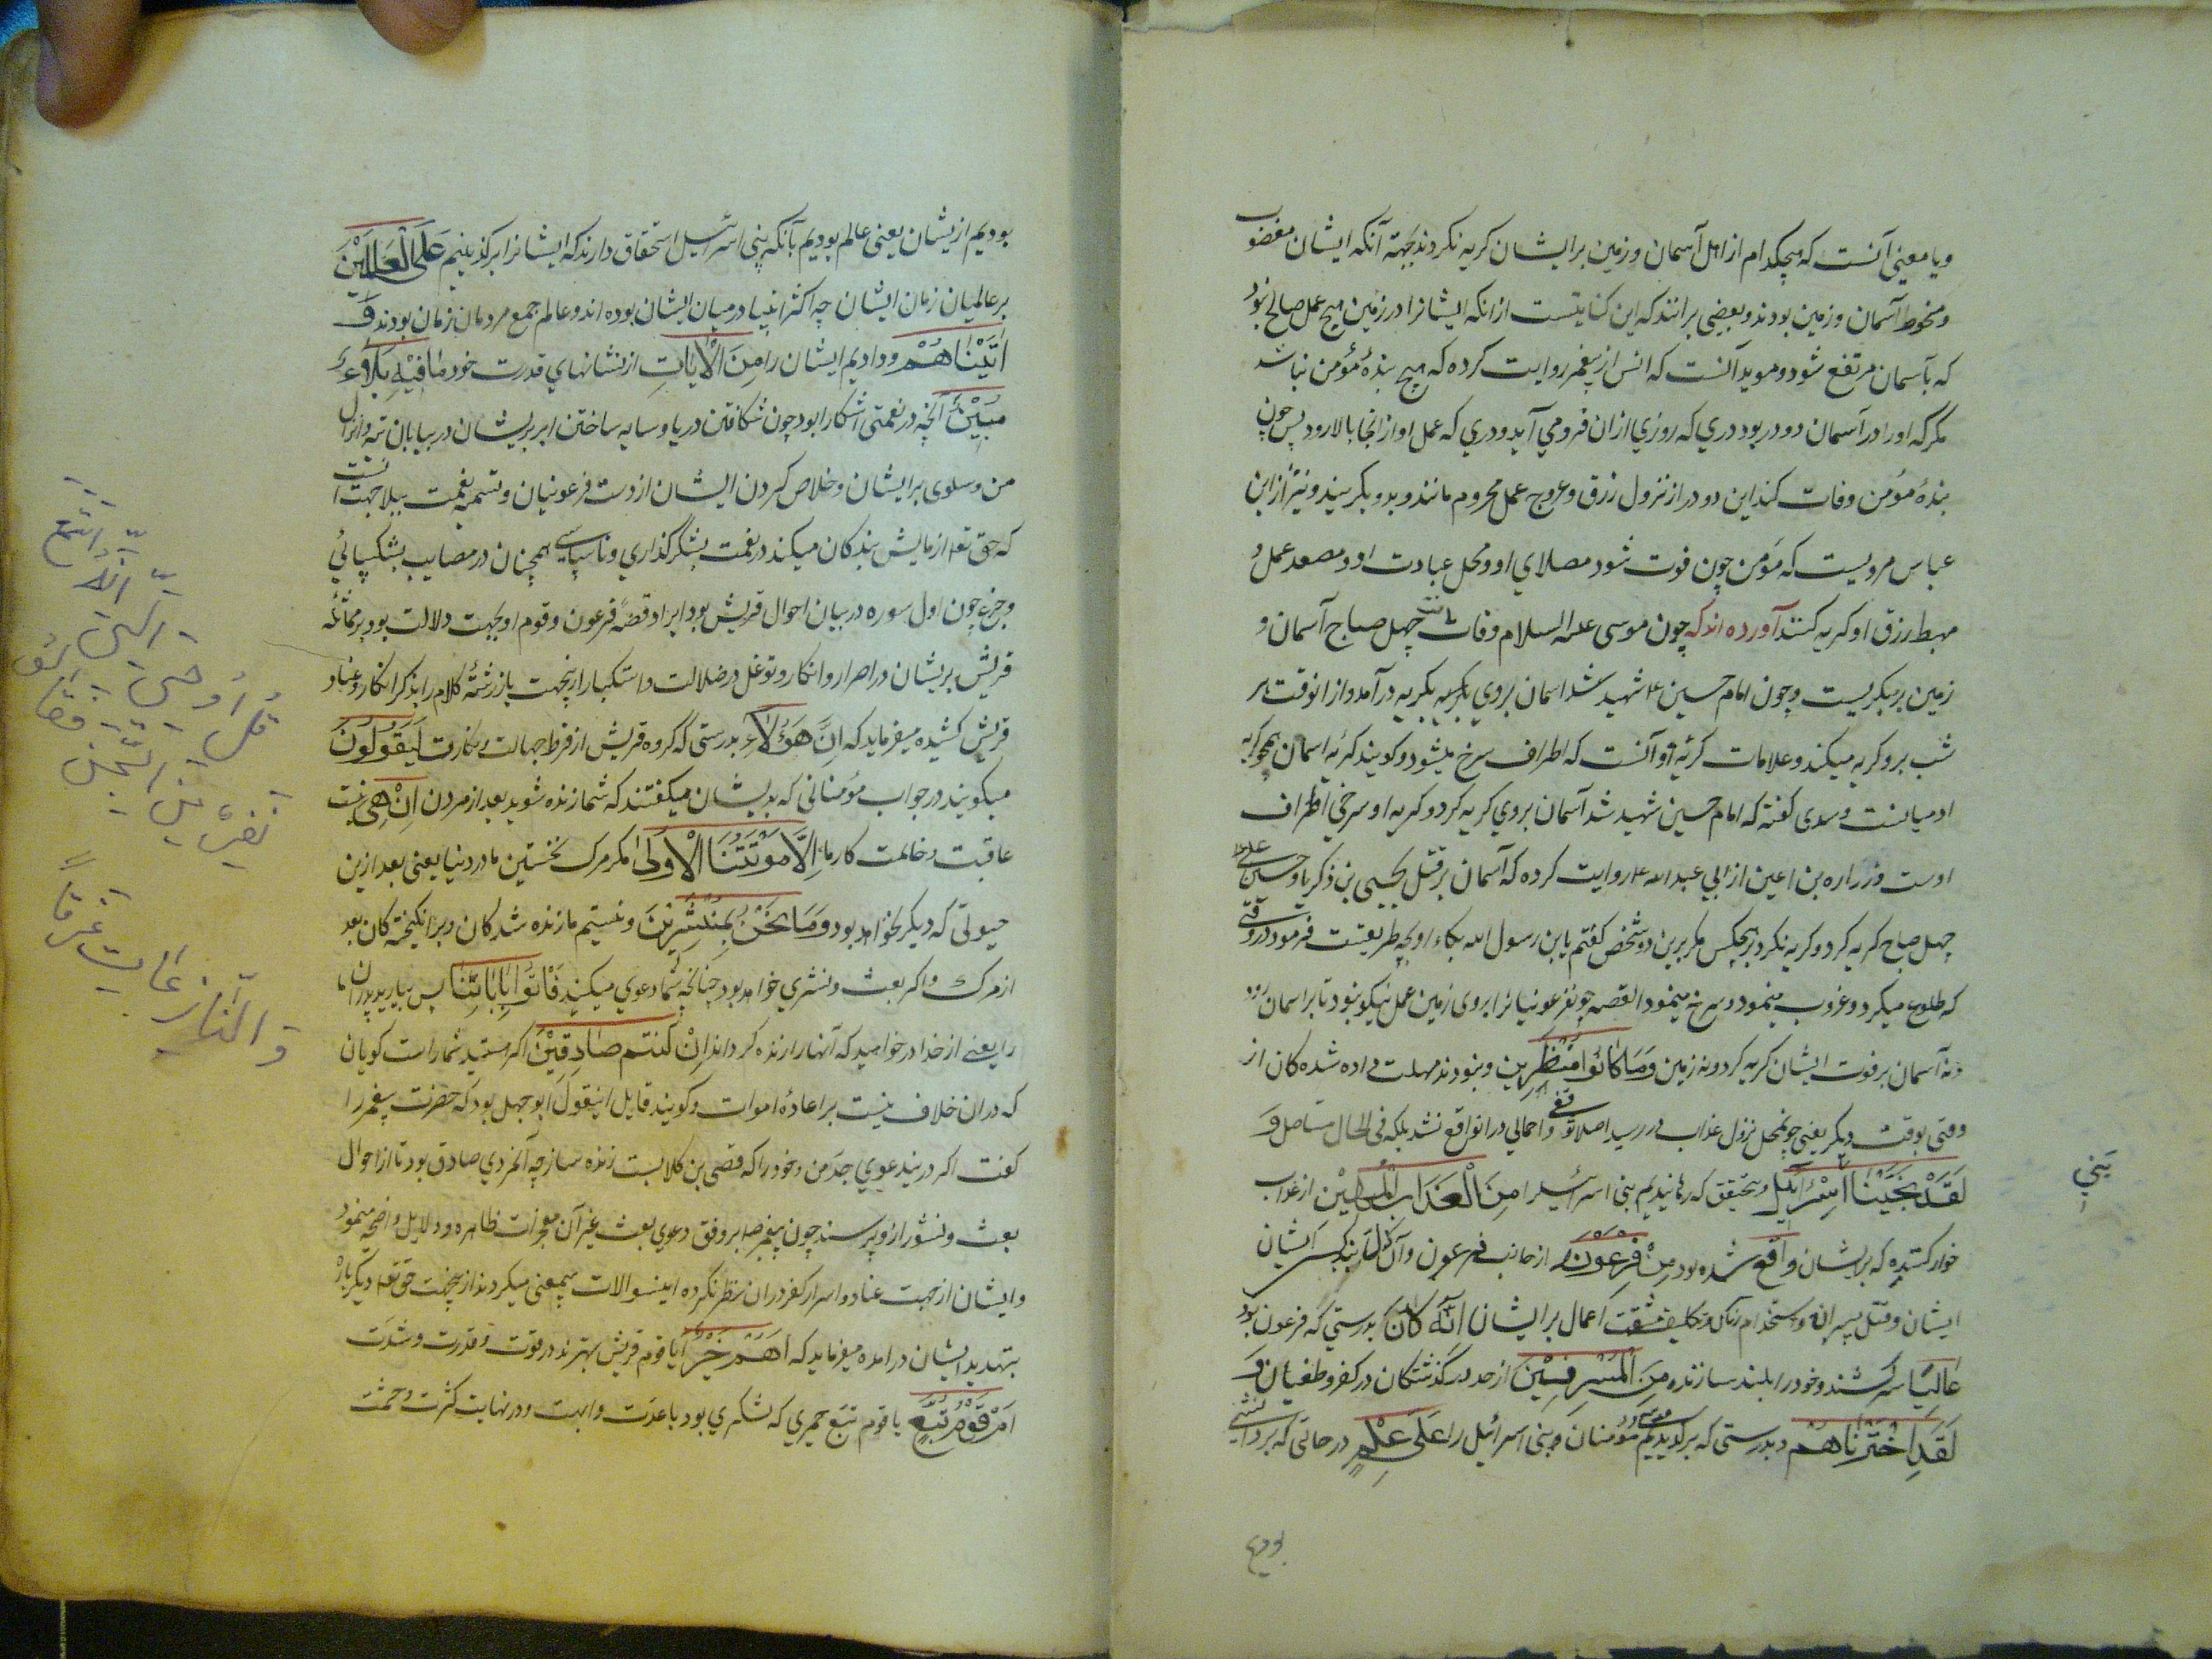 ویا معنی آنست که هیچکدام از اهل آسمان و زمین بر ایشان کریه نکردند بجهة آنکه ایشان مغضوب
و مخوط آسمان و زمین بودند و بعضی برانند که این کنایتست از انکه ایشانرا در زمین هیچ عمل صالح نبود
که بآسمان مرتفع شود و موید آنست که انس از پیغمبر روایت کرده که هیچ بندهٔ مؤمن نباشد
مکر که اورا در آسمان دو در بود دری که روزی ازان فرو می آید و دری که عمل او از انجا بالا رود پس چون
بندهٔ مؤمن وفات کند این دو در از نزول رزق و عروج عمل محروم مانند و بدو بکریند و نیز از ابن
عباس مرویست که مؤمن چون فوت شود مصلای او و محل عبادت او و مصعد عمل و
مهبط رزق او کریه کنند آورده اند که چون موسی علیه السلام وفات یافت چهل صباح آسمان و
زمین برو بکریست و چون امام حسین ع شهید شد اسمان بروی بکریه درآمد و از انوقت هر
شب برو کریه میکند و علامات کریهٔ او آنست که اطراف سرخ میشود و کویند کریه اسمان همچو کریه
ادمیانست و سدی کفته که امام حسین شهید شد آسمان بروی کریه کرد و کریه او سرخی اطراف
اوست و زراره بن اعین از ابی عبد الله ع روایت کرده که آسمان بر قتل یحیی بن ذکریا و حسین بن علی
چهل صباح کریه کرد و کریه نکرد بر هیچکس مکر برین دو شخص کفتم یابن رسول الله بکاء او بچه طریقست فرمود در وقتی
که طلوع میکرد و غروب مینمود و سرخ مینمود القصه چون فرعونیانرا بروی زمین عمل نیکو نبود تا بر اسمان رود
نه آسمان بر فوت ایشان کریه کرد و نه زمین وَمَا كَانُوا مُنْظَرِينَ و نبودند مهلت داده شده کان از
وقتی بوقت دیکر یعنی چون محل نزول عذاب در رسید اصلا توقفی و اهمالی در ان واقع نشد بلکه فی الحال مستاصل وَ
لَقَدْ نَجَّيْنَا بَنِي إِسْرَائِيلَ و بتحقیق که رهانیدیم بنی اسرائیلرا مِنَ الْعَذَابِ الْمُهِينِ از عذاب
خوار کننده که بر ایشان واقع شده بود مِنْ فِرْعَوْنَ از جانب فرعون و آن
ایشان و قتل پسران و استخدام زنان و تکلیف مشقت اعمال بر ایشان إِنَّهُ كَانَ بدرستی که فرعون بود
عَالِيًا سرکشنده و خود را بلند سازنده مِنَ الْمُسْرِفِينَ از حد در گذشتکان در کفر و طغیان وَ
لَقَدِ اخْتَرْنَاهُمْ و بدرستی که برکزیدیم مؤمنان بنی اسرائیل را عَلَى عِلْمٍ در حالتی که بر دانشی
بودیم
بَنِي
بودیم ازیشان یعنی عالم بودیم بآنکه بنی اسرائیل استحقاق دارند که ایشانرا برکزینیم عَلَى الْعَالَمِينَ
بر عالمیان زمان ایشان چه اکثر انبیا در میان ایشان بوده اند و عالم جمع مردمان زمان بودند وَ
اٰتَيْنَاهُمْ و دادیم ایشان را مِنَ الْاٰيَاتِ از نشانهای قدرت خود مَا فِيهِ بَلٰؤٌا
مُبِينٌ آنچه در نعمتی اشکارا بود چون شکافتن دریا و سایه ساختن ابر بریشان در بیابان تیه و انزال
من و سلوی بر ایشان و خلاص کردن ایشان از دست فرعونیان و تسمیه نعمت ببلا جهت آنست
که حق تعا ازمایش بندکان میکند در نعمت بشکر گذاری و ناسپاسی همچنان در مصایب بشکیبائی
و جزع چون اول سوره در بیان احوال قریش بود ایراد قصه فرعون و قوم او بجهت دلالت بود بر مماثله
قریش بریشان در اصرار و انکار و توغل در ضلالت و استکبار ازینجهت باز رشتهٔ کلام را بذکر انکار و عناد
قریش کشیده میفرماید که اِنَّ هٰؤُلَاءِ بدرستی که کروه قریش از فرط جهالت لَيَقُولُونَ
میکویند در جواب مؤمنانی که بدیشان میکفتند که شما زنده شوید بعد از مردن اِنْ هِيَ نیست
عاقبت و خاتمت کار ما اِلَّا مَوْتَتُنَا الْاُولٰى مکر مرک نخستین ما در دنیا یعنی بعد ازین
حیوتی که دیکر نخواهد بود وَمَا نَحْنُ بِمُنْشَرِينَ و نیستیم ما زنده شدکان و برانکیخته کان بعد
از مرک و اکر بعث و نشری خواهد بود چنانچه شما دعوی میکنید فَأْتُوا بِاٰبَائِنَا پس بیارید پدران ما
را یعنی از خدا درخواهید که آنها را زنده کرداند اِنْ كُنْتُمْ صَادِقِينَ اکر هستید شما راست کویان
که دران خلاف نیست بر اعادهٔ اموات و کویند قایل اینقول ابو جهل بود که حضرت پیغمبر را
کفت اکر درین دعوی جد من و خود را که قصی بن کلابست زنده ساز چه آن مردی صادق بود تا از احوال
بعث و نشور ازو پرسند چون پیغمبر ص بر وفق دعوی بعث غیر آن معجزات ظاهره و دلایل واضحه مینمود
و ایشان از جهت عناد و اسرار کفر دران نظر نکرده اینسوالات بیمعنی میکردند ازینجهت حق تعا دیکر باره
بتهدید ایشان درامده میفرماید که اَهُمْ خَيْرٌ ایا قوم قریش بهترند در قوت و قدرت و شدت
اَمْ قَوْمُ تُبَّعٍ یا قوم تبع حمیری که لشکری بود با عدت و ابهت و در نهایت کثرت و حشمت
قُل أُوحِيَ إِلَيَّ أَنَّهُ اسْتَمَعَ
نَفَرٌ مِنَ الْجِنِّ فقا
وَالنَّازِعَاتِ غَرْقًا